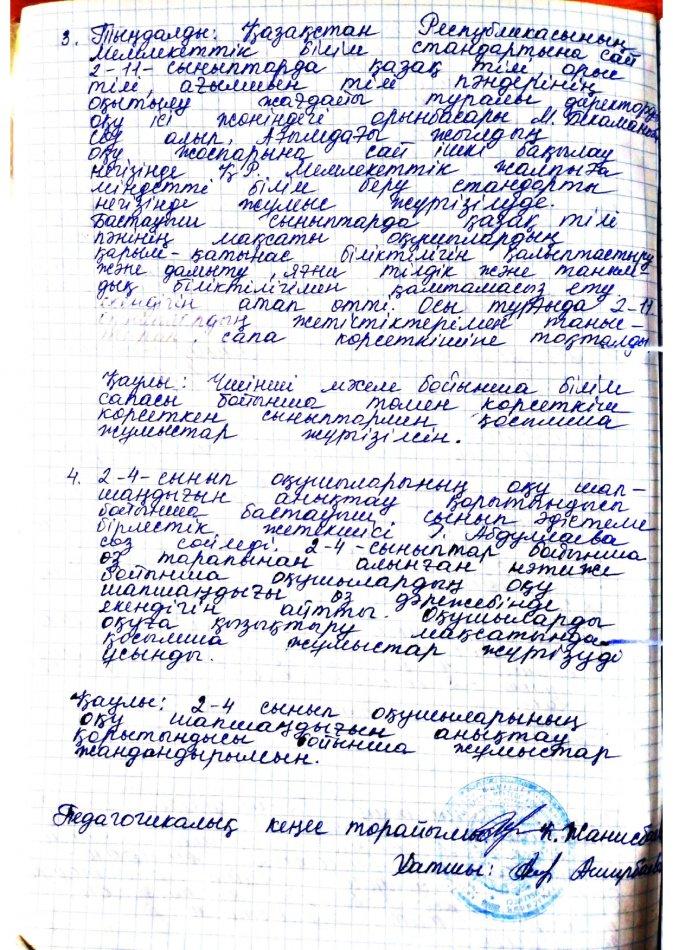 3. Тыңдалды: Қазақстан Республикасының
Мемлекеттік білім стандартына сай
2-11-сыныптарда қазақ тілі орыс
тілі, ағылшын тілі пәндерінің
оқытылу жағдайы туралы директордың
оқу ісі жөніндегі орынбасары М.
сөз алып, Ағымдағы жылдың
оқу жоспарына сай ішкі бақылау
негізінде Қ.Р. Мемлекеттік жалпыға
міндетті білім беру стандарты
негізінде жұмыс жүргізілуде.
Бастауыш сыныптарда қазақ тілі
пәнінің мақсаты оқушылардың
қарым-қатынас біліктілігін қалыптастыру
және дамыту, яғни тілдік және таным
дық біліктілігімен қамтамасыз ету
екендігін атап өтті. Осы турыда 2-11
жетістіктерімен таныс-
сапа көрсеткішіне тоқталды
Қаулы: Үшінші мәселе бойынша білім
сапасы бойынша төмен көрсеткіш
көрсеткен сыныптармен қосымша
жұмыстар жүргізілсін.
4. 2-4-сынып оқушыларының оқу шап-
шаңдығын анықтау қорытындысы
бойынша бастауыш сынып әдістеме
бірлестік жетекшісі Абдуллаева
сөз сөйледі. 2-4-сыныптар бойынша
өз тарапынан алынған нәтиже
бойынша оқушылардың оқу
шапшаңдығы өз дәрежебінде
екендігін айтты. Оқушыларды
оқуға қызықтыру мақсатында
қосымша жұмыстар жүргізуді
ұсынды.
Қаулы: 2-4 сынып оқушыларының
оқу шапшаңдығын анықтау
қорытындысы бойынша жұмыстар
жандандырылсын.
Педагогикалық кеңес төрайымы
Хатшы: